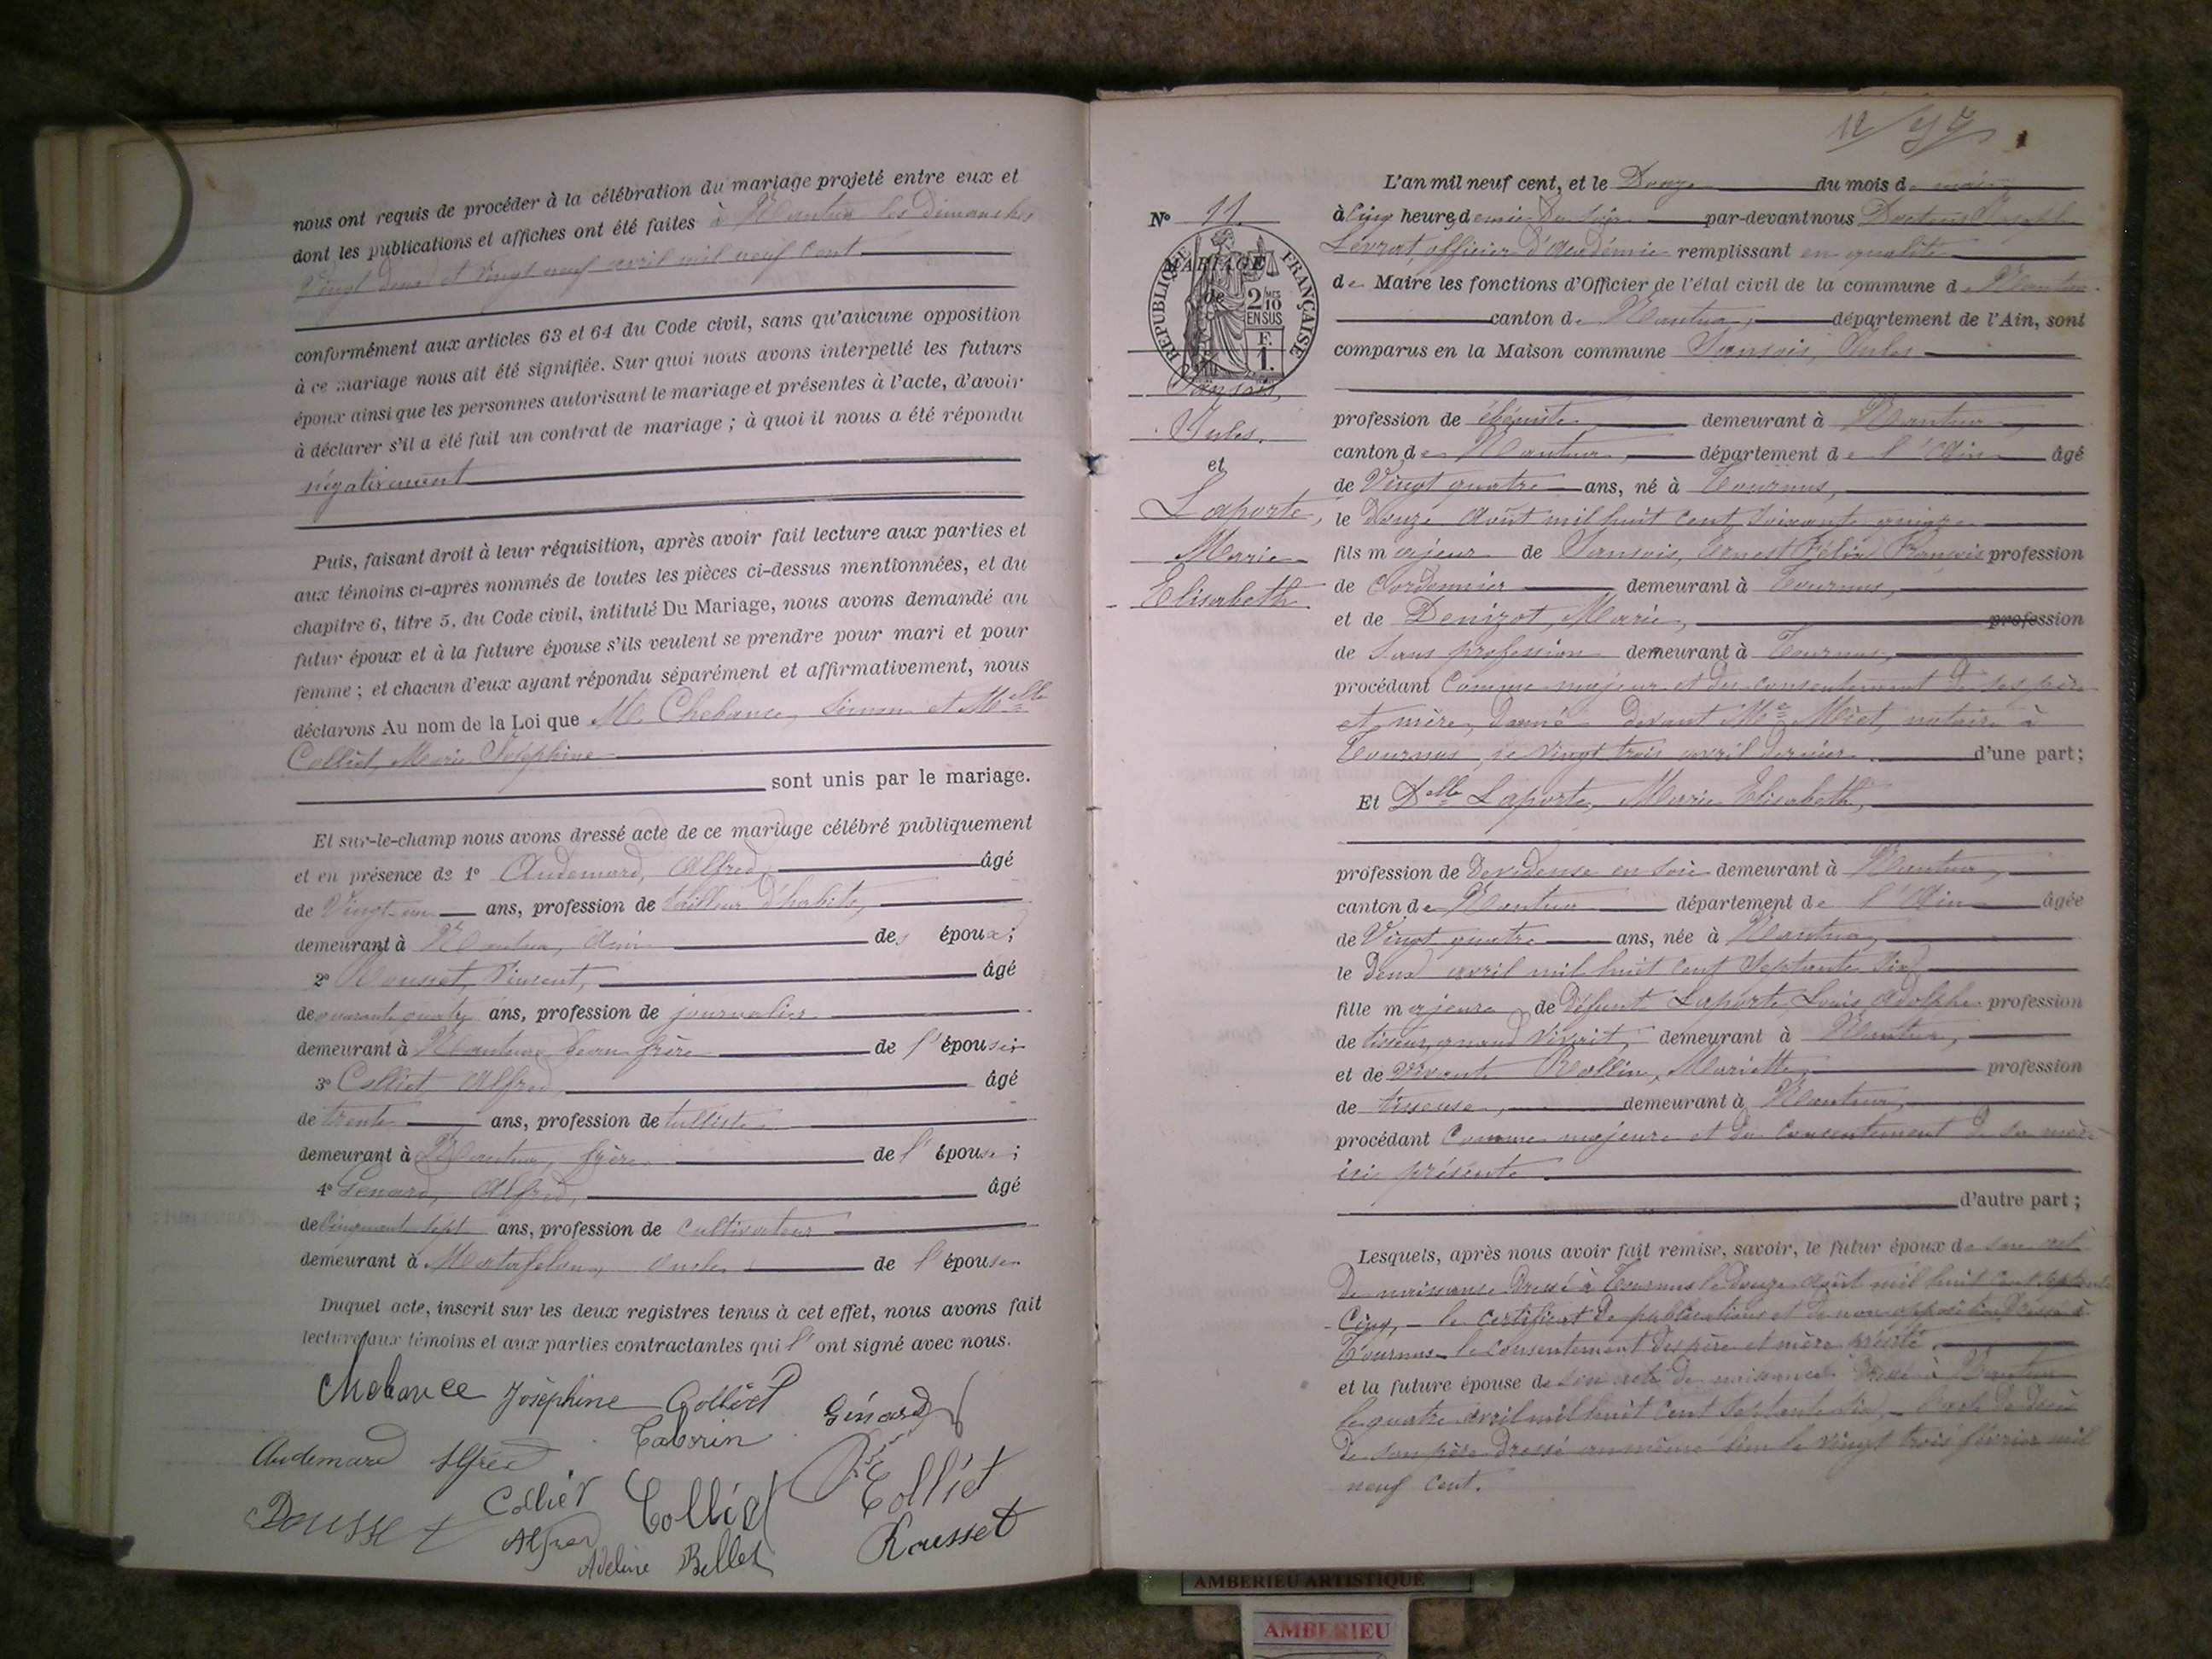 nous ont requis de procéder à la célébration du mariage projeté entre eux et
dont les publications et affiches ont été faites à Nantua les dimanches
Vingt deux et Vingt neuf avril mil neuf cent
conformément aux articles 63 et 64 du Code civil, sans qu'aucune opposition
à ce mariage nous ait été signifiée. Sur quoi nous avons interpellé les futurs
époux ainsi que les personnes autorisant le mariage et présentes à l'acte, d'avoir
à déclarer s'il a été fait un contrat de mariage ; à quoi il nous a été répondu
négativement
Puis, faisant droit à leur réquisition, après avoir fait lecture aux parties et
aux témoins ci-après nommés de toutes les pièces ci-dessus mentionnées, et du
chapitre 6, titre 5, du Code civil, intitulé Du Mariage, nous avons demandé au
futur époux et à la future épouse s'ils veulent se prendre pour mari et pour
femme ; et chacun d'eux ayant répondu séparément et affirmativement, nous
déclarons Au nom de la Loi que M. Chebance, Simon et Melle
Colliet, Marie Joséphine
sont unis par le mariage.
Et sur-le-champ nous avons dressé acte de ce mariage célébré publiquement
et en présence de 1° Audemard, Alfred, âgé
de Vingt-un ans, profession de tailleur d'habits,
demeurant à Nantua, ami des époux ;
2° Rousset, Vincent, âgé
de quarante quatre ans, profession de journalier
demeurant à Nantua beau frère de l'épouse ;
3° Colliet Alfred, âgé
de trente ans, profession de tulliste
demeurant à Nantua, frère de l'épouse ;
4° Genard, Alfred, âgé
de Cinquante sept ans, profession de cultivateur
demeurant à Matafelon, oncle de l'épouse
Duquel acte, inscrit sur les deux registres tenus à cet effet, nous avons fait
lecture aux témoins et aux parties contractantes qui l'ont signé avec nous.
Chebance Joséphine Colliet Génard
Taborin
Audemard Alfred
Rousset Collier Alfred Colliet Colliet
Adeline Bellet Rousset
12
N° 11
RÉPUBLIQUE FRANÇAISE
MARIAGE
de
2/10 MES EN SUS
F. 1.
Sansois,
Jules,
et
Laporte,
Marie
Elisabeth
L'an mil neuf cent, et le Douze du mois de mai,
à Cinq heures demie du soir par-devant nous Docteur Joseph
Levrat, officier d'académie remplissant en qualité
de Maire les fonctions d'Officier de l'état civil de la commune de Nantua
canton de Nantua, département de l'Ain, sont
comparus en la Maison commune Sansois, Jules
profession de ébéniste demeurant à Nantua,
canton de Nantua, département de l'Ain âgé
de Vingt quatre ans, né à Tournus,
le Douze Août mil huit cent soixante quinze
fils majeur de Sansois, Ernest Félix François profession
de Cordonnier demeurant à Tournus,
et de Denizot, Marie, profession
de Sans profession demeurant à Tournus,
procédant Comme majeur et du consentement de ses père
et mère, donné devant Me Miet, notaire à
Tournus, le vingt trois avril dernier d'une part ;
Et Delle Laporte, Marie Elisabeth,
profession de Devideuse en soie demeurant à Nantua,
canton de Nantua département de l'Ain âgée
de Vingt quatre ans, née à Nantua,
le Deux avril mil huit cent Septante Six
fille majeure de Défunt Laporte, Louis Adolphe profession
de tisseur quand vivait, demeurant à Nantua,
et de Vivante Rollin, Mariette, profession
de tisseuse, demeurant à Nantua,
procédant Comme majeure et du Consentement de sa mère
ici présente.
d'autre part ;
Lesquels, après nous avoir fait remise, savoir, le futur époux de son acte
de naissance dressé à Tournus le douze Août mil huit cent septante
Cinq, - le certificat de publications et de non opposition dressé à
Tournus - le consentement des père et mère précité.
et la future épouse de son acte de naissance dressé à Nantua
le quatre avril mil huit cent septante six, - l'acte de décès
de son père dressé au même lieu le vingt trois février mil
neuf cent.
AMBERIEU ARTISTIQUE
AMBERIEU